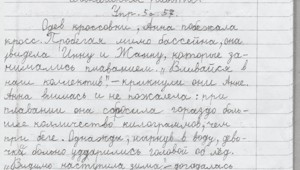 Упр. 52. 57.
Одев кроссовки, Анна побежала
кросс. Пробегая мимо бассейна, она
увидела Инну и Жанну, которые за-
нимались плаванием. "Вливайся в
наш коллектив" – крикнули они Анне.
Анна влилась и не пожалела: при
плавании она сбросила гораздо боль-
шее количество килограммов, чем
при беге. Однажды, нырнув в воду, дево-
чки больно ударились головой об лёд.
"Видимо наступила зима" – догадалась